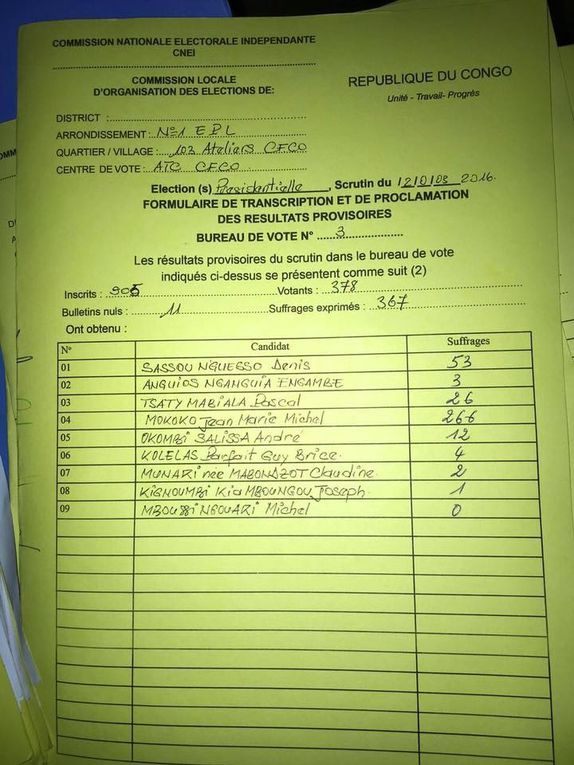 COMMISSION NATIONALE ELECTORALE INDEPENDANTE
CNEI
COMMISSION LOCALE
D'ORGANISATION DES ELECTIONS DE:
REPUBLIQUE DU CONGO
Unité - Travail- Progrès
DISTRICT :
ARRONDISSEMENT: N°1 E P L
QUARTIER / VILLAGE : 103 Ateliers CFCO
CENTRE DE VOTE : ATC CFCO
Election (s) Présidentielle, Scrutin du 2016.
FORMULAIRE DE TRANSCRIPTION ET DE PROCLAMATION
DES RESULTATS PROVISOIRES
BUREAU DE VOTE N° 3
Les résultats provisoires du scrutin dans le bureau de vote
indiqués ci-dessus se présentent comme suit (2)
Inscrits : 905 Votants : 378
Bulletins nuls : 11 Suffrages exprimés : 367
Ont obtenu :
N° Candidat Suffrages
01 SASSOU NGUESSO Denis 53
02 ANGUIOS NGANGUIA ENGAMBE 3
03 TSATY MABIALA Pascal 26
04 MOKOKO Jean Marie Michel 266
05 OKOMBI SALISSA André 12
06 KOLELAS Parfait Guy Brice 4
07 MUNARI née MABONDZOT Claudine 2
08 KIGNOUMBI Kia MBOUNGOU Joseph 1
09 MBOUSSI NGOUARI Michel 0